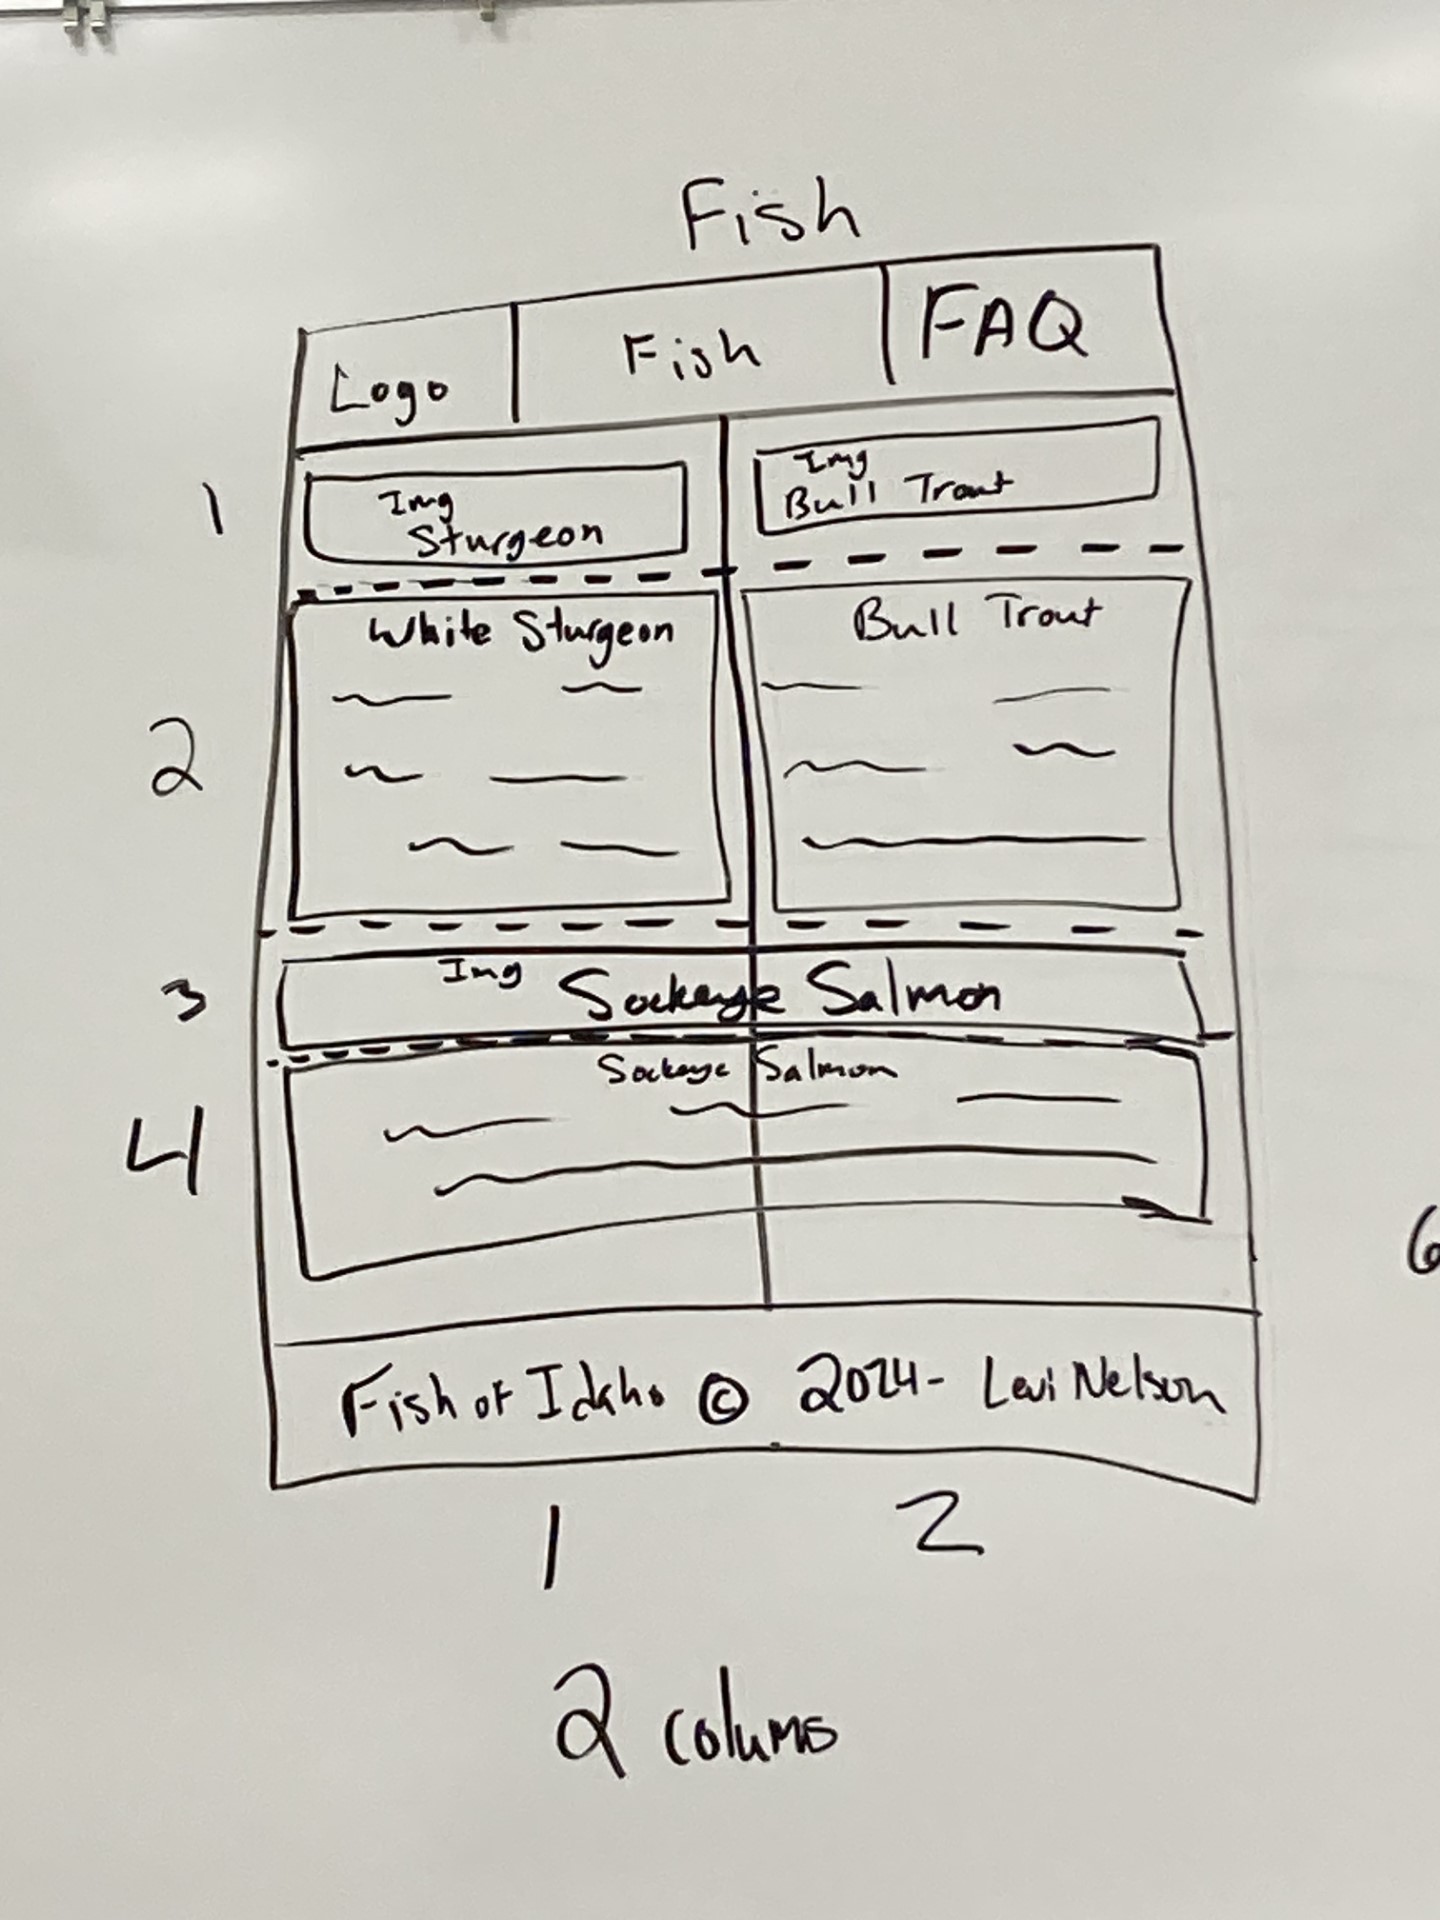 Fish
Logo
Fish
FAQ
1
Img
Sturgeon
Img
Bull Trout
2
White Sturgeon
Bull Trout
3
Img
Sockeye Salmon
4
Sockeye Salmon
6
Fish of Idaho © 2024- Levi Nelson
1
2
2 colums